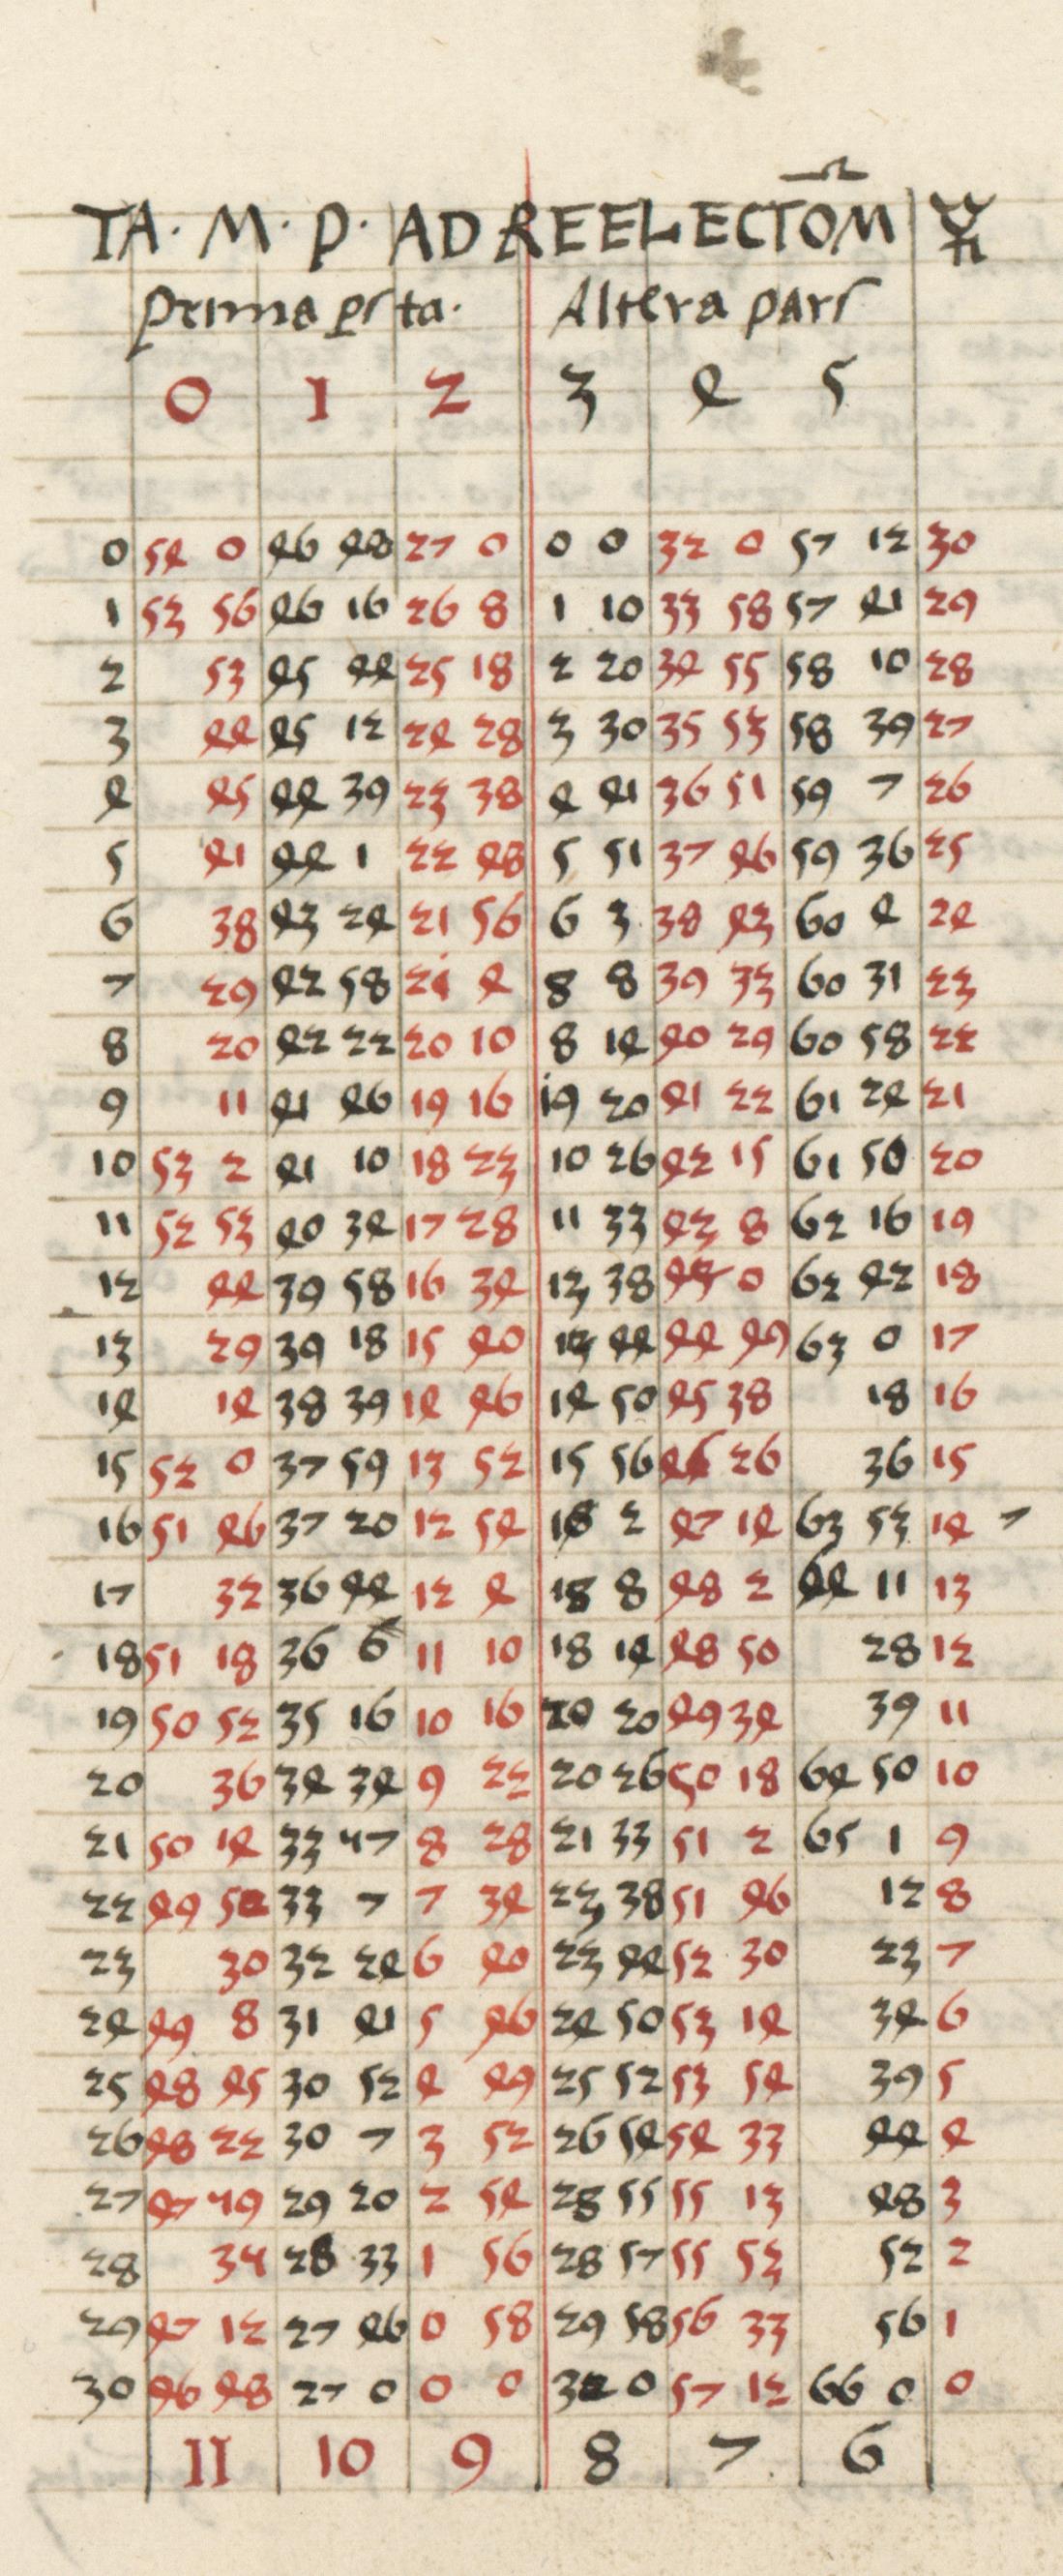 TA. M. P. AD REELECTOM ☿
Prima ps ta. Altera pars
0 1 2 3 4 5
0 54 0 46 48 27 0 0 0 32 0 57 12 30
1 53 56 46 16 26 8 1 10 33 58 57 41 29
2 53 45 44 25 18 2 20 34 55 58 10 28
3 44 45 12 24 28 3 30 35 53 58 39 27
4 45 44 39 23 38 4 41 36 51 59 7 26
5 41 44 1 22 48 5 51 37 46 59 36 25
6 38 43 24 21 56 6 3 38 43 60 4 24
7 29 42 58 21 4 8 8 39 33 60 31 23
8 20 42 22 20 10 8 14 40 29 60 58 22
9 11 41 46 19 16 19 20 41 22 61 24 21
10 53 2 41 10 18 23 10 26 42 15 61 50 20
11 52 53 40 34 17 28 11 33 43 8 62 16 19
12 44 39 58 16 34 13 38 44 0 62 42 18
13 29 39 18 15 40 13 44 44 49 63 0 17
14 14 38 39 14 46 14 50 45 38 18 16
15 52 0 37 59 13 52 15 56 46 26 36 15
16 51 46 37 20 12 54 18 2 47 14 63 53 14 7
17 32 36 44 12 4 18 8 48 2 64 11 13
18 51 18 36 6 11 10 18 14 48 50 28 12
19 50 52 35 16 10 16 20 20 49 34 39 11
20 36 34 34 9 22 20 26 50 18 64 50 10
21 50 14 33 47 8 28 21 33 51 2 65 1 9
22 49 52 33 7 7 34 23 38 51 46 12 8
23 30 32 24 6 40 23 44 52 30 23 7
24 49 8 31 41 5 46 24 50 53 14 34 6
25 48 45 30 52 4 49 25 52 53 54 39 5
26 48 22 30 7 3 52 26 54 54 33 44 4
27 47 49 29 20 2 54 28 55 55 13 48 3
28 34 28 33 1 56 28 57 55 53 52 2
29 47 12 27 46 0 58 29 58 56 33 56 1
30 46 48 27 0 0 0 32 0 57 12 66 0 0
11 10 9 8 7 6